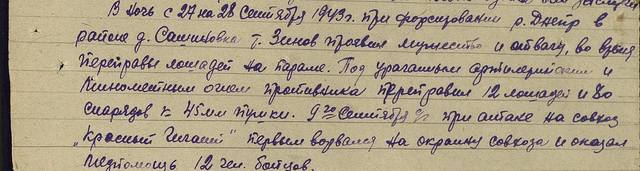 В ночь с 27 на 28 Сентября 1943г. при форсировании р. Днепр в
районе д. Сашиновка т. Зинов проявил мужество и отвагу, во время
переправы лошадей на пароме. Под ураганным артилерийским и
минометным огнем противника переправил 12 лошадей и 80
снарядов к 45мм пушки. 9го Сентября при атаке на совхоз
„Красный Гигант" первым ворвался на окраину совхоза и оказал
медпомощь 12 чел. бойцов.